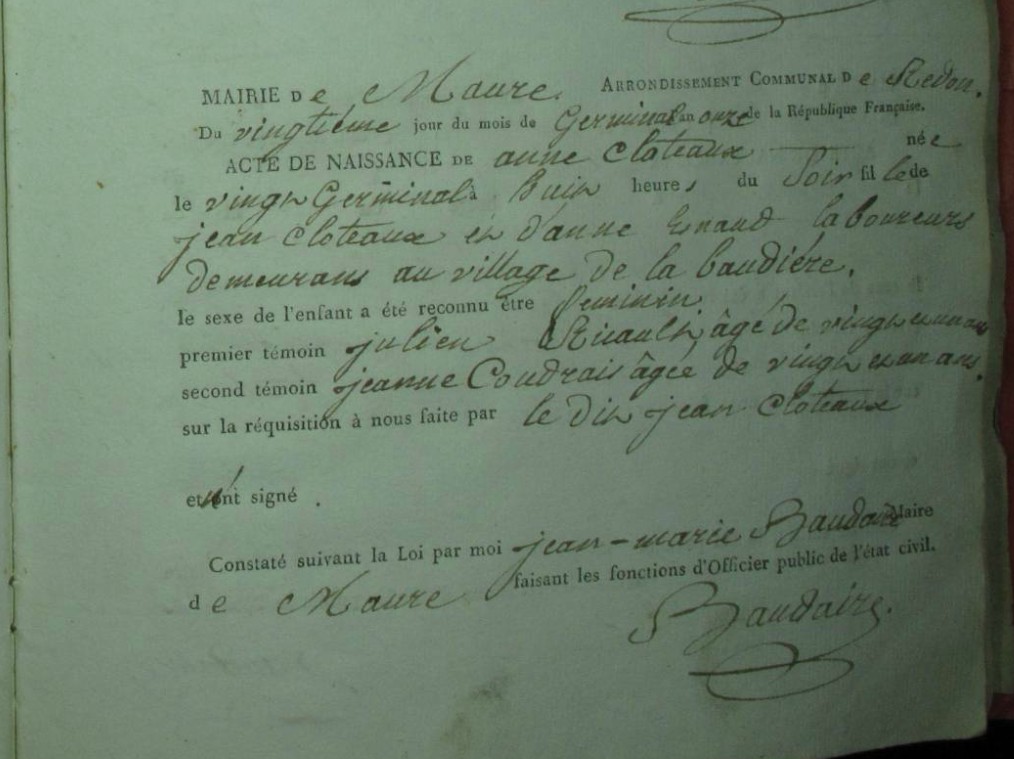 MAIRIE De Maure. ARRONDISSEMENT COMMUNAL De Redon.
Du vingtiéme jour du mois de Germinal an onze de la République Française.
ACTE DE NAISSANCE DE anne Cloteaux née
le vingt Germinal à huit heures du Soir fille de
jean Cloteaux et d'anne Enaud laboureurs
demeurans au village de la baudiére.
le sexe de l'enfant a été reconnu être feminin
premier témoin julien Ricault âgé de vingt et un ans
second témoin jeanne Coudrais âgée de vingt et un ans.
sur la réquisition à nous faite par le dit jean Cloteaux
et n'ont signé .
Constaté suivant la Loi par moi jean-marie Baudaire Maire
de Maure faisant les fonctions d'Officier public de l'état civil.
Baudaire.